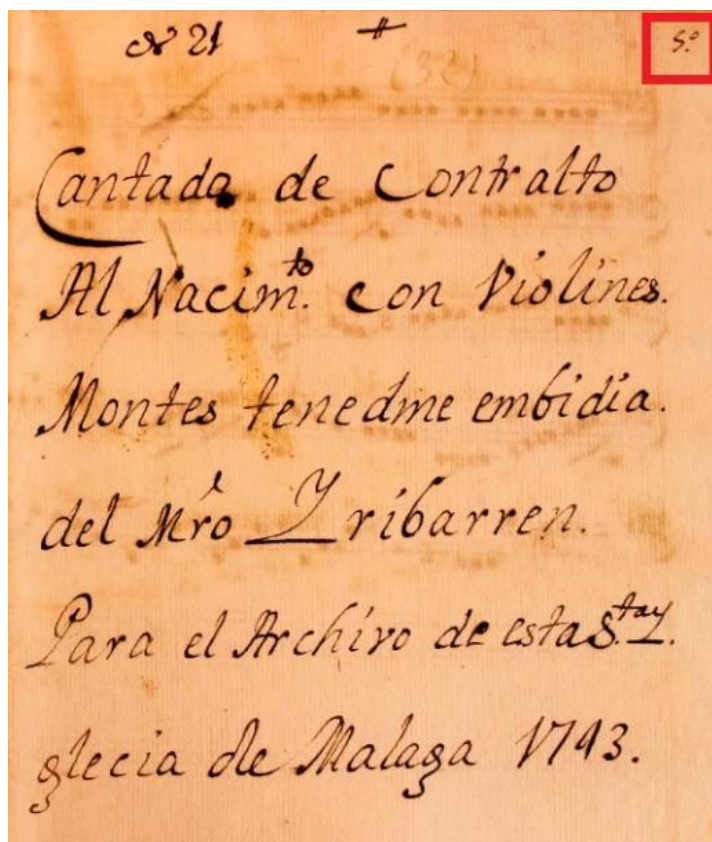 Nº 21
5.º
(32)
Cantada de Contralto
Al Nacim.to con Violines.
Montes tenedme embidia.
del Mro Yribarren.
Para el Archivo de esta S.ta Y.
glecia de Malaga 1743.